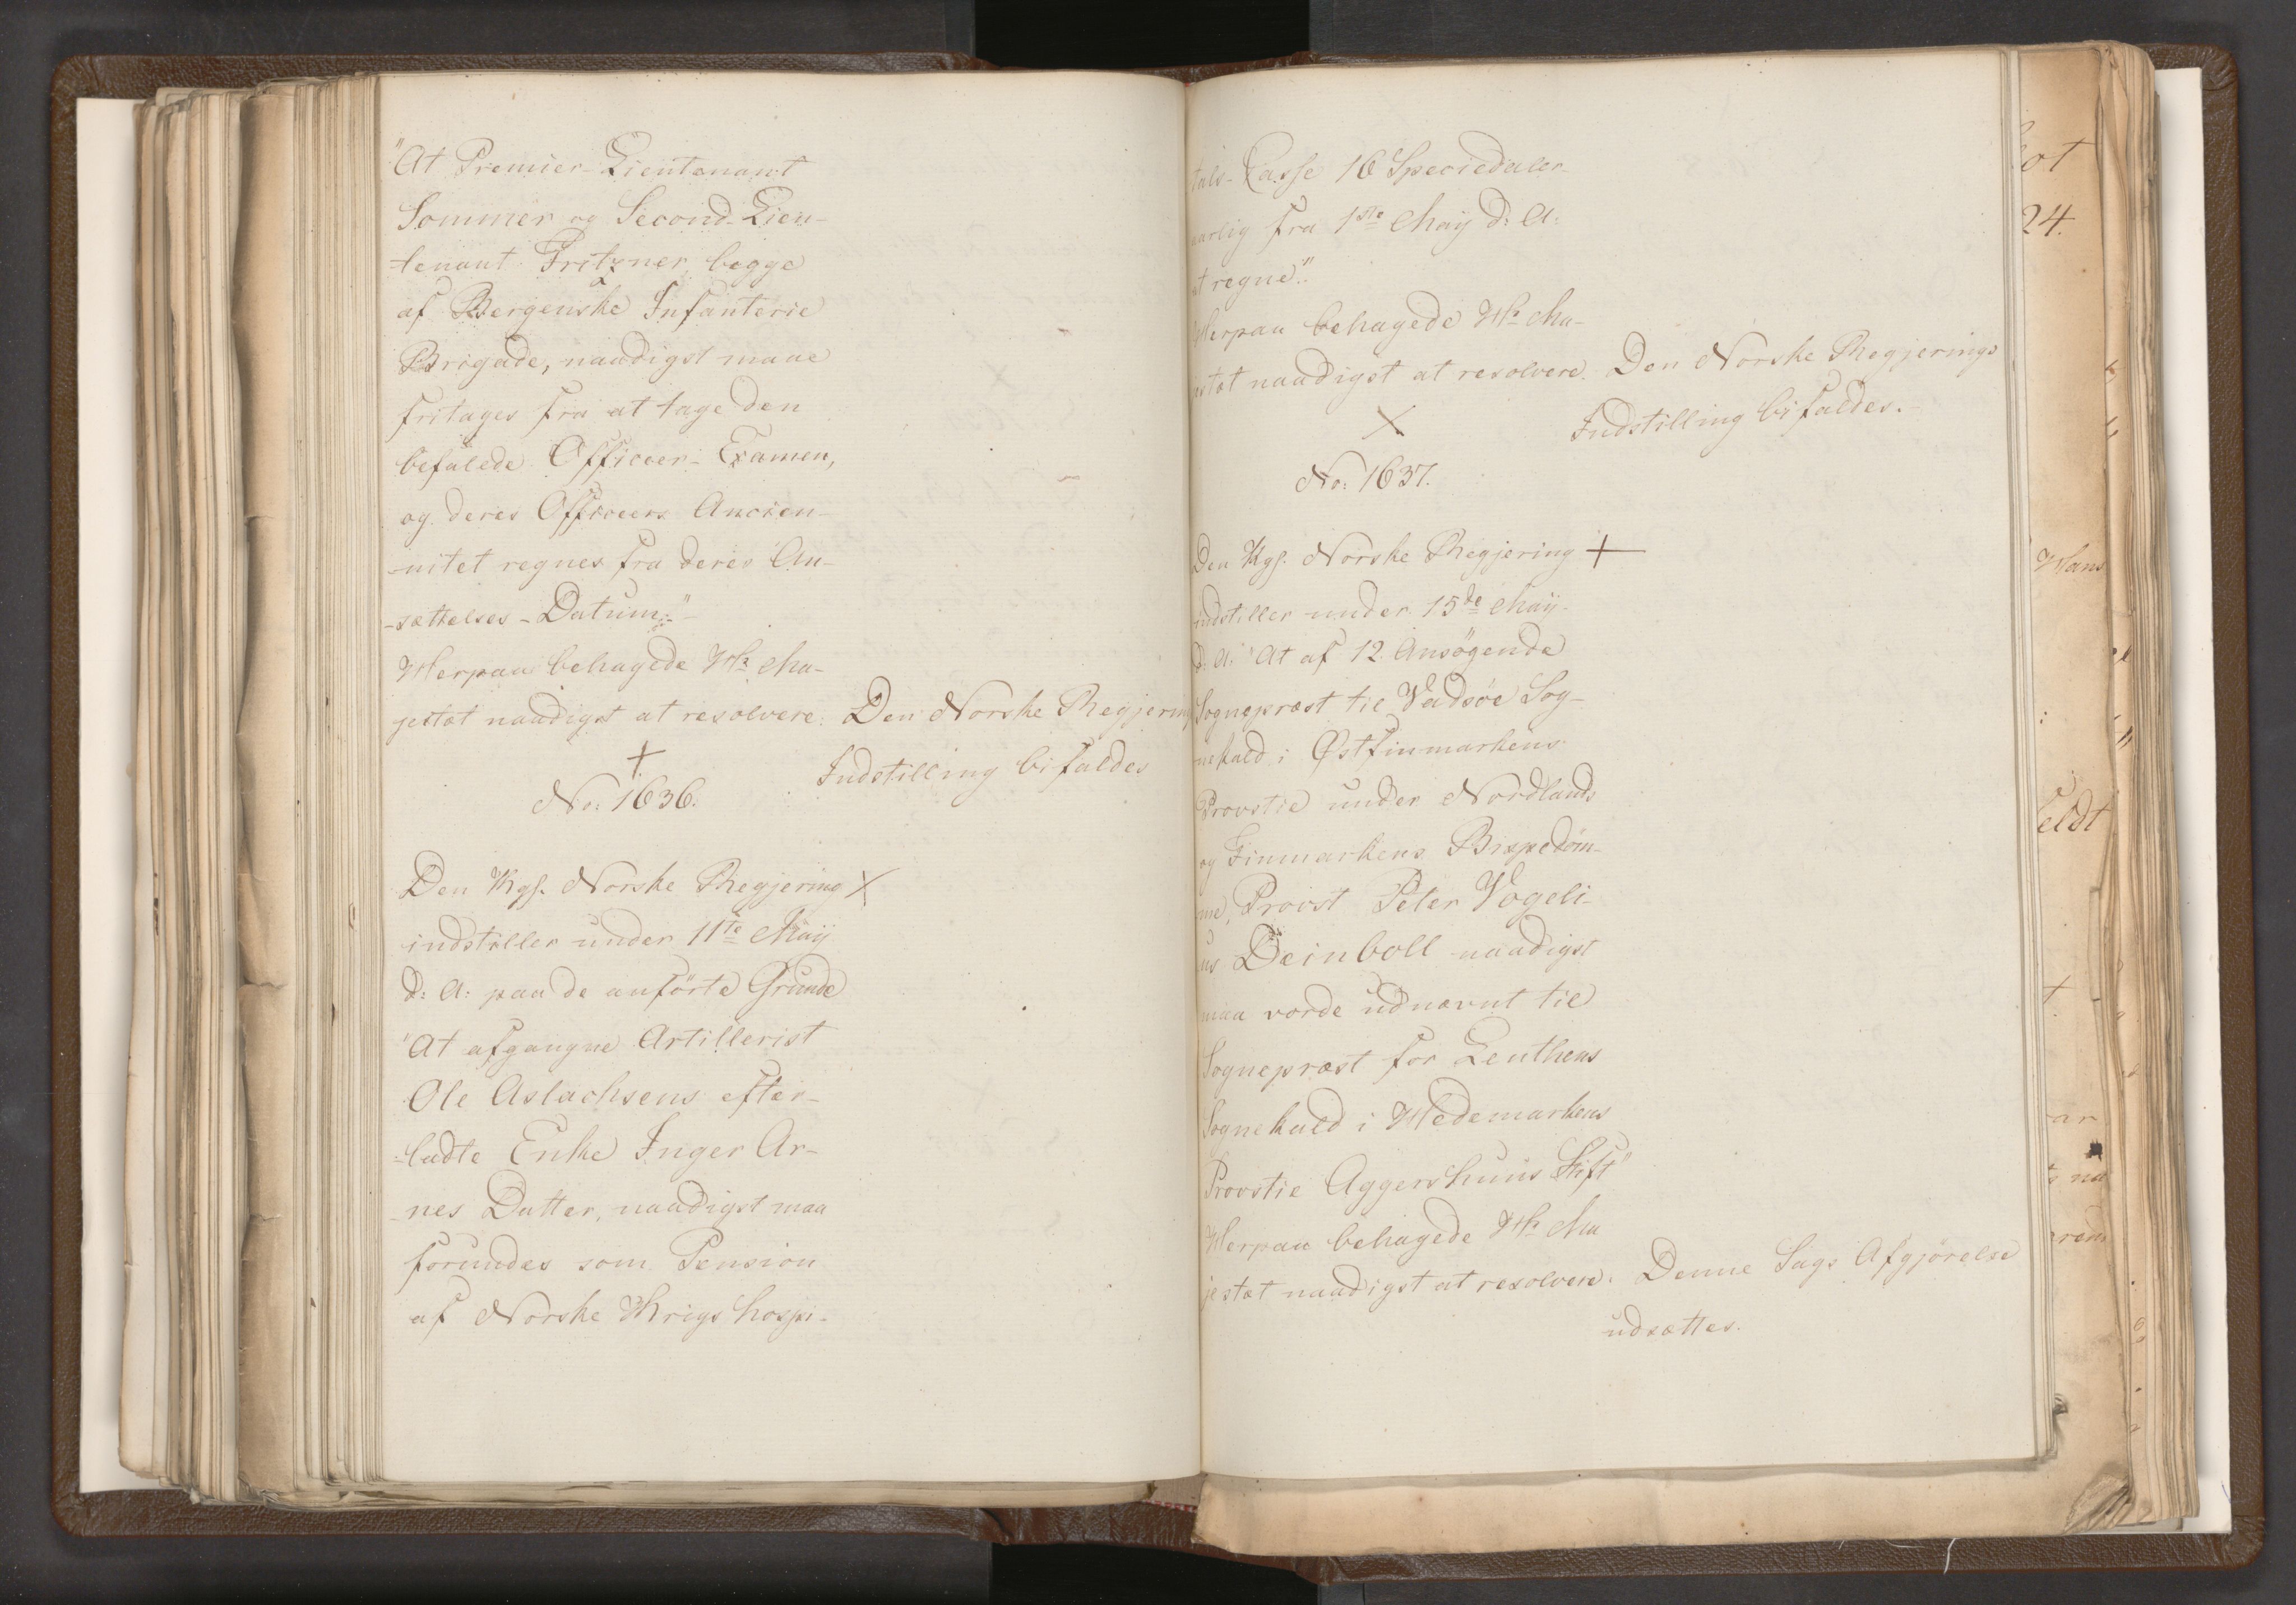 "At Premier-Lieutenant
Sommer og Second-Lieu-
-tenant Fritzner, begge
af Bergenske Infanterie
Brigade, naadigst maae
fritages fra at tage den
befalede Officeer-Examen,
og deres Officeers Ancien-
-nitet regnes fra deres An-
-sættelses-Datum:"
Herpaa behagede Hs Ma-
jestæt naadigst at resolvere: Den Norske Regjerings
Indstilling bifaldes
+
No: 1636.
Den Kgl. Norske Regjering X
indstiller under 11te Maij
d: A: paa de anförte Grunde
"At afgangne Artillerist
Ole Aslachsens efter-
-ladte Enke Inger Ar-
-nes Datter, naadigst maa
forundes som Pension
af Norske Krigs hospi-
tals-Casse 16 Speciedaler
aarlig fra 1ste Maij d: A:
at regne".
Herpaa behagede Hs Ma-
jestæt naadigst at resolvere. Den Norske Regjerings
Indstilling bifaldes.-
X
No: 1637.
Den Kgl. Norske Regjering +
indstiller under 15de Maij
d: A: "At af 12 Ansögende
Sognepræst til Vadsöe Sog-
nekald i Østfinmarkens
Provstie under Nordlands
og Finmarkens Bispedöm-
me, Provst Peter Vogeli-
us Deinboll naadigst
maa vorde udnævnt til
Sognepræst for Leuthens
Sognekald i Hedemarkens
Provstie Aggershuus Stift"
Herpaa behagede Hs Ma
jestæt naadigst at resolvere: Denne Sags Afgjörelse
udsættes.
24.
Hans
eldt
ar
na